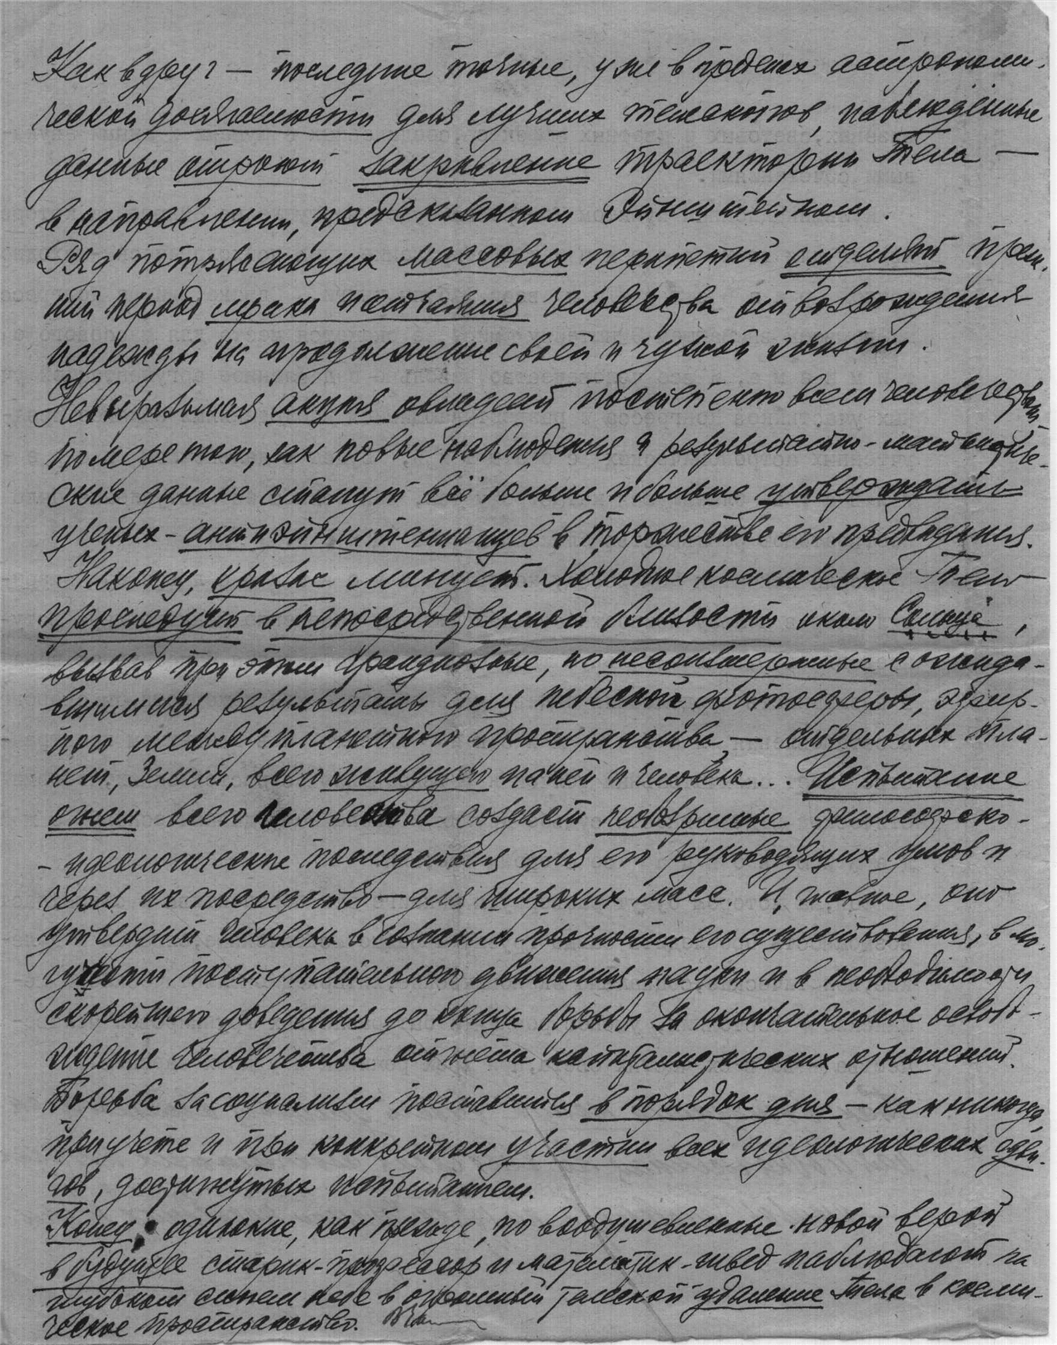 Как вдруг — последние точные, уже в пределах астрономи-
ческой досягаемости для лучших телескопов, наблюдённые
данные строют закривление траектории Тела —
в направлении, предсказанном Эйнштейном.
Ряд потрясающих массовых перипетий отделяет преж-
ний период мрака и отчаяния человечества от возрождения
надежды на продолжение своей и чужой жизни.
Невыразимая овладеет постепенно всем человечеством
по мере того, как новые наблюдения и результатно-математиче-
ские данные станут всё больше и больше утверждать
учёных-антиэйнштенианцев в торжестве его предвидения.
Наконец, кризис минует. Холодное космическое Тело
проследует в непосредственной близости около Солнца,
вызвав при этом грандиозные, но несоизмеримые с ожида-
вшимися результаты для небесной фотосферы, эфир-
ного междупланетного пространства — отдельных пла-
нет, Земли, всего живущего на ней и человека... Испытание
огнем всего человества создаст необозримые философско-
- идеологические последствия для его руководящих умов и
через их посредство — для широких масс. И, главное, оно
утвердит человека в сознании прочности его существования, в мо-
гуности поступательного движения науки и в необходимости
скорейшего доведения до конца борьбы за окончательное освобо-
ждение человечества от гнёта капиталистических отношений.
Борьба за социализм поставится в порядок дня — как никогда,
при учёте и при конкретном участии всех идеологических сдви-
гов, достигнутых испытанием.
Конец: одинокие, как прежде, но воодушевленные новой верой
в будущее старик-профессор и математик-швед наблюдают на
глубоком синем небе в огромный удаление Тела в косми-
ческое пространство.